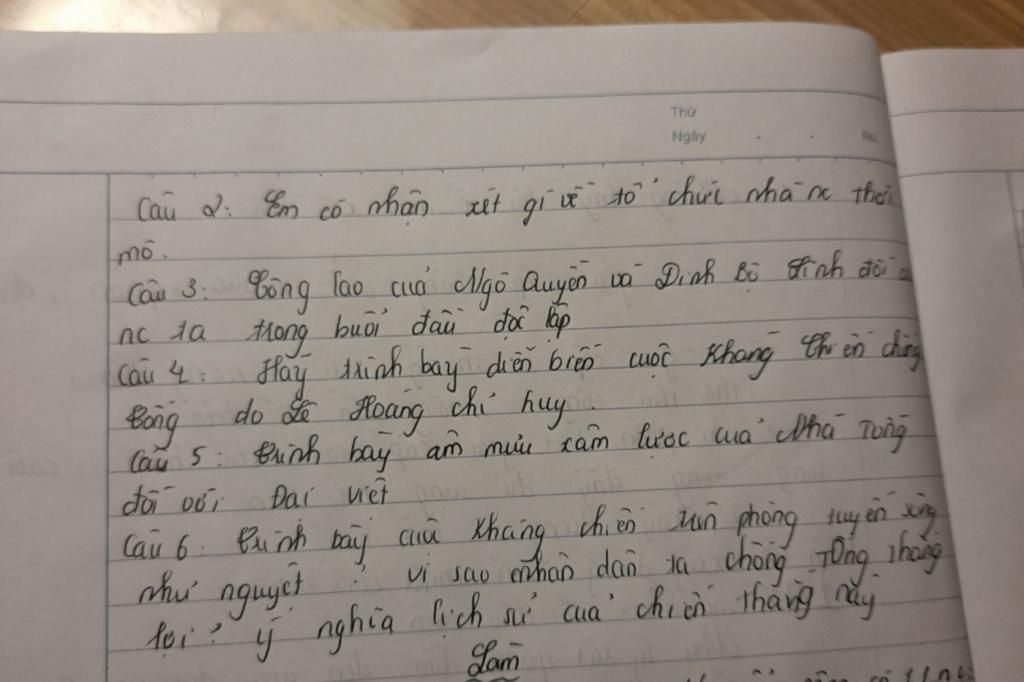 Thứ
Ngày
No.
Câu 2: Em có nhận xét gì về tổ chức nhà nc thời
mô.
Câu 3: Công lao của Ngô Quyền và Đinh Bộ Lĩnh đối
nc ta trong buổi đầu độc lập
Câu 4: Hãy trình bày diễn biến cuộc kháng chiến chống
Tống do Lê Hoàng chỉ huy.
Câu 5: Trình bày âm mưu xâm lược của Nhà Tống
đối với Đại Việt
Câu 6. Trình bày cuả kháng chiến trên phòng tuyến sông
như nguyệt ? vì sao nhân dân ta chống Tống thắng
lợi? ý nghĩa lịch sử của chiến thắng này
Làm